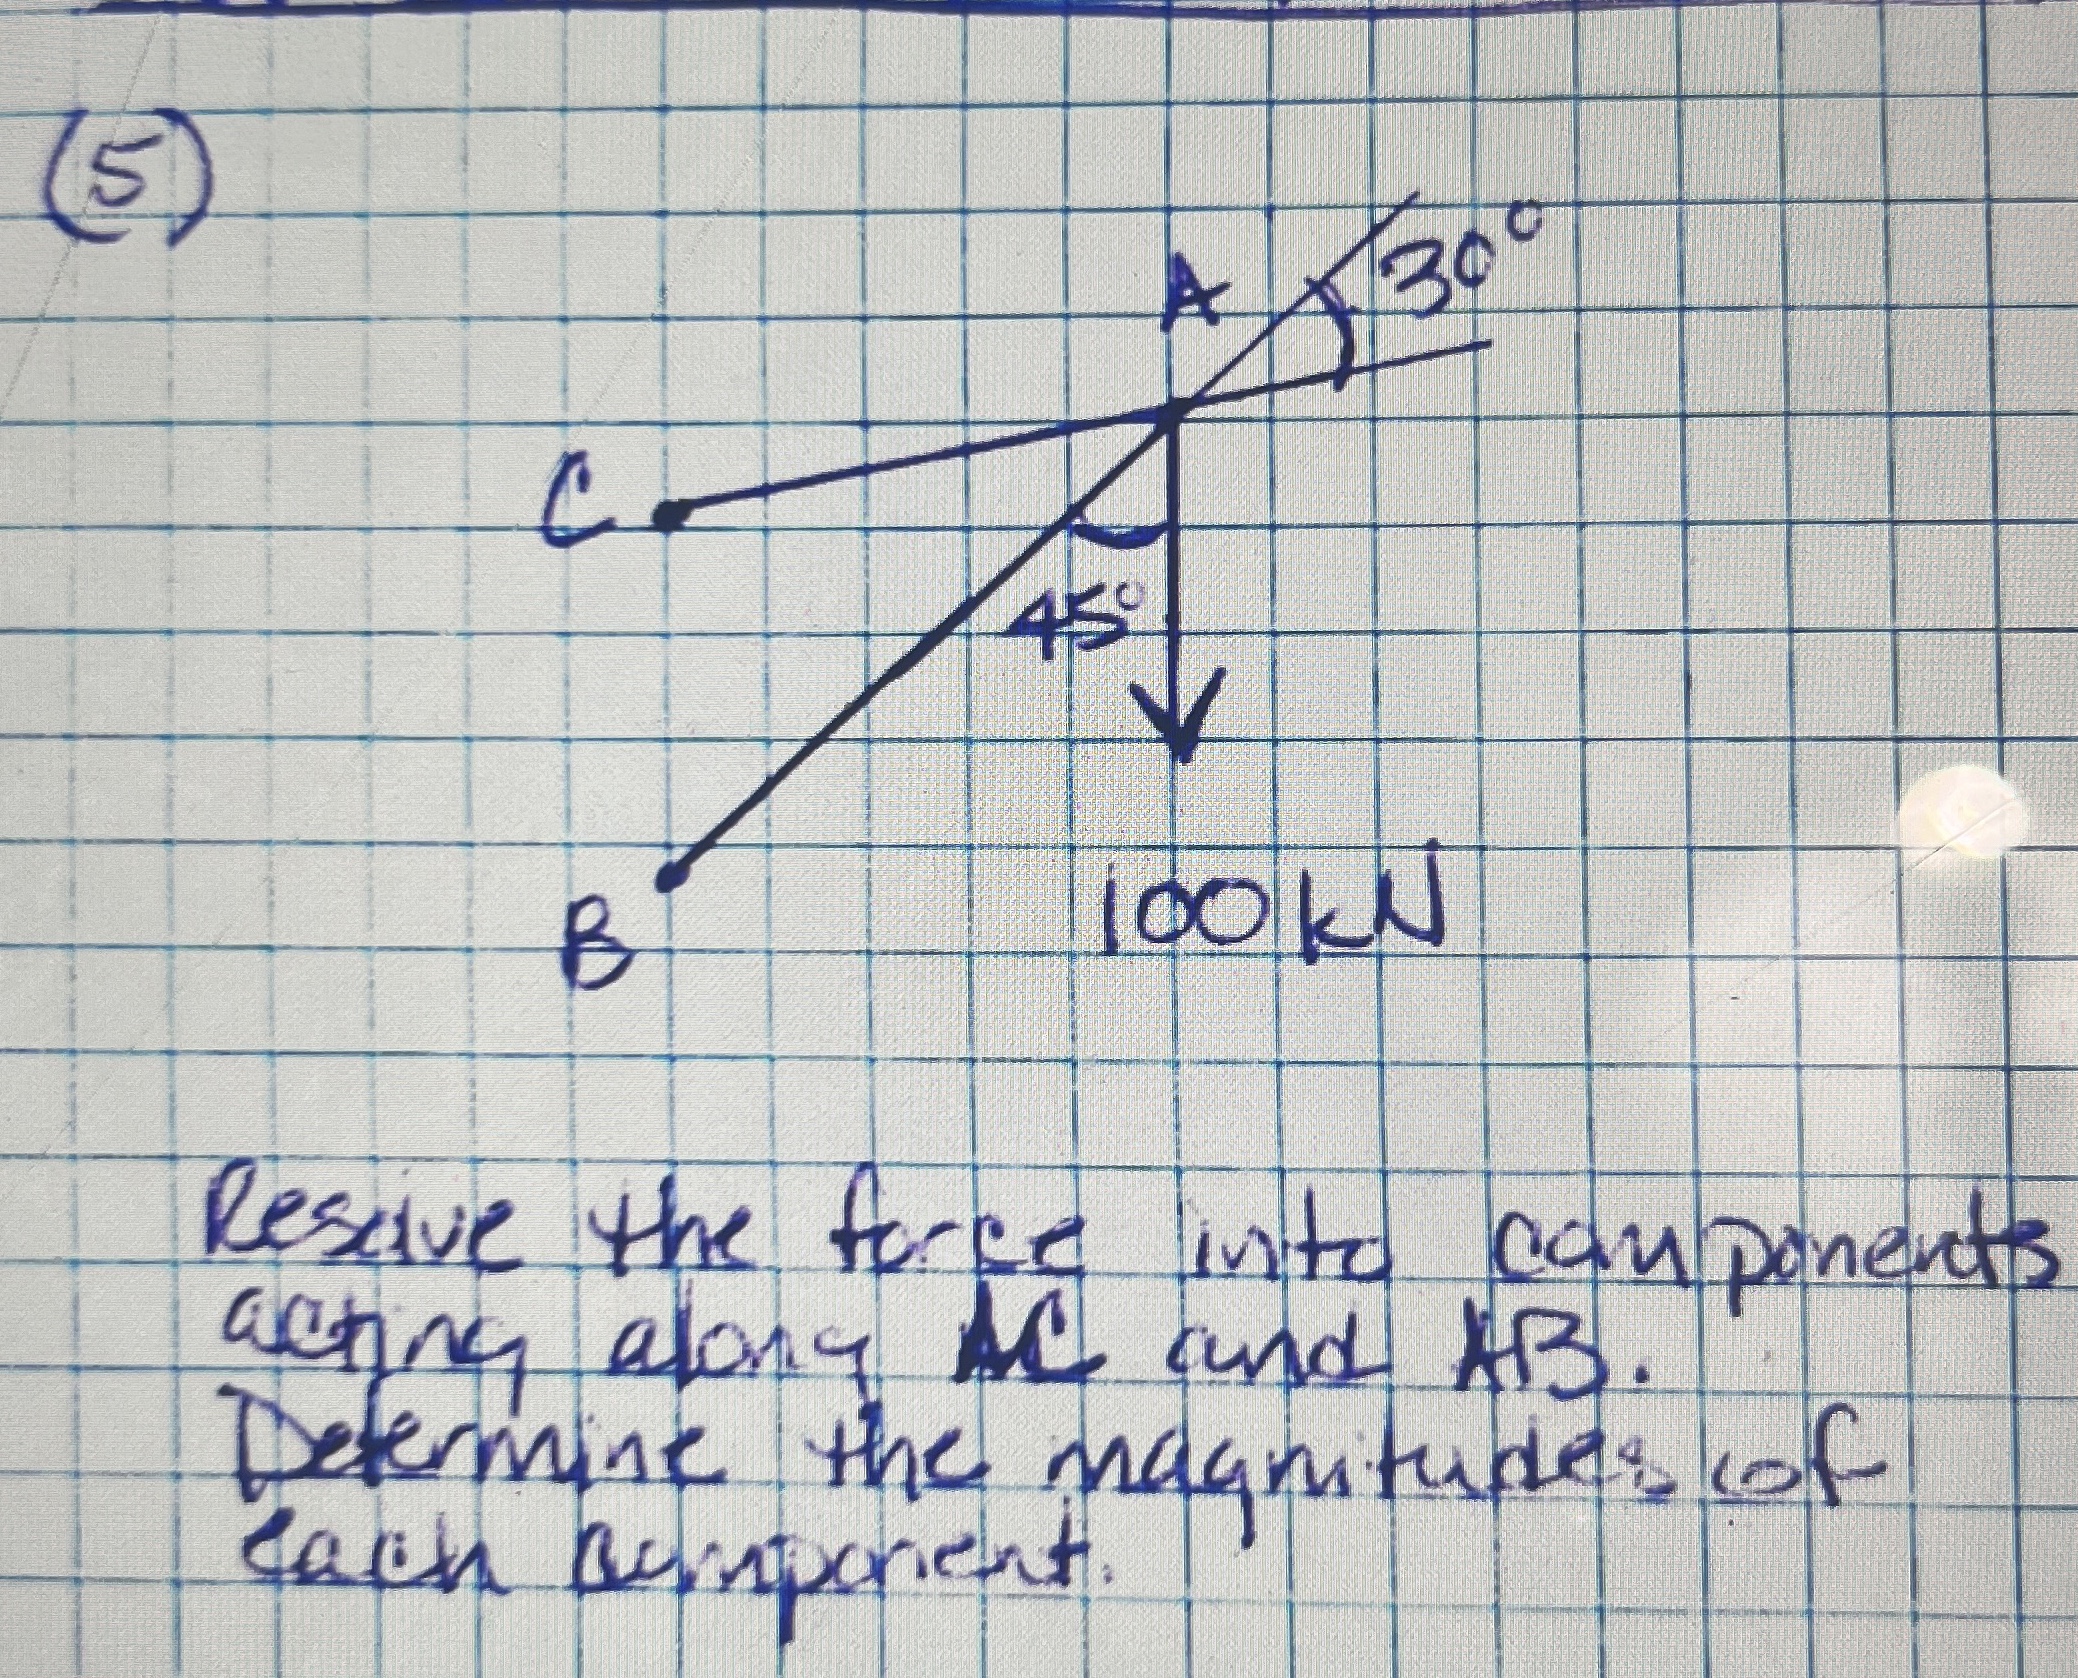 (5)
A
30°
C
45°
B
100 kN
Resolve the force into components
acting along AC and AB.
Determine the magnitudes of
each component.